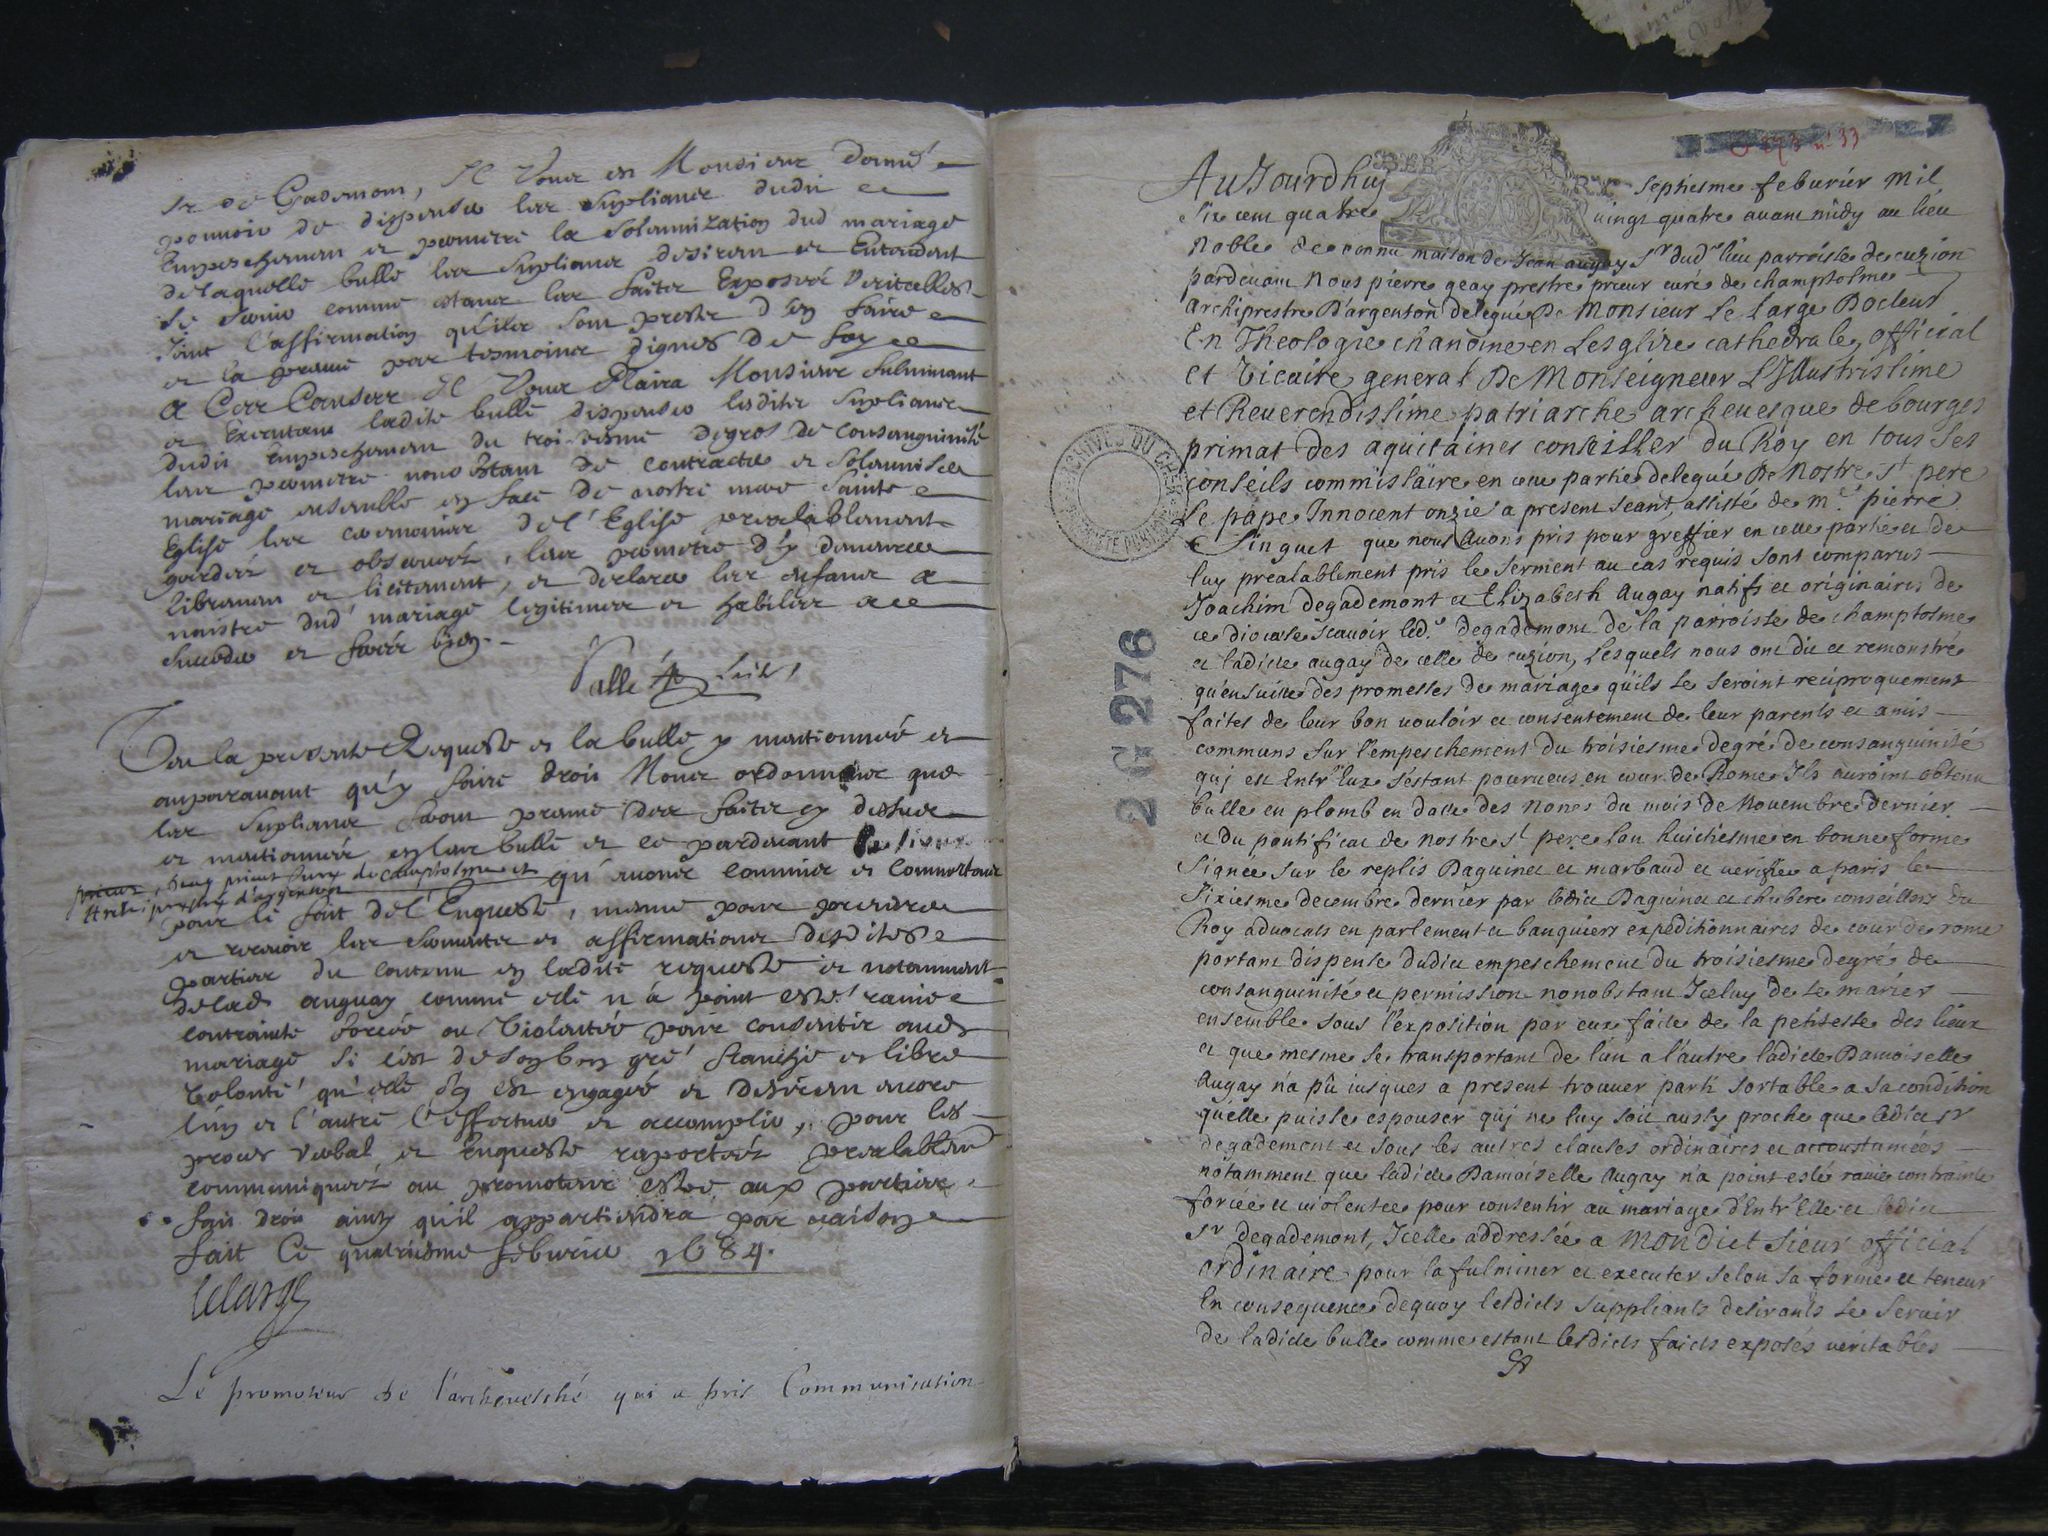 Sr de Gademont, Il vous est Monsieur donné
pouvoir de dispenser les supliants dudit
Empeschement et permettre la solemnization dud mariage
de laquelle bulle les supliants desirent et Entendent
se servir comme estants les faits Exposez veritables
Joint l'affirmation qu'ils sont prests d'en faire
et la preuve par tesmoings dignes de foy
A Ces Causes Il vous Plaira Monsieur fulminant
et Executant ladite bulle dispenser lesdits supliants
dudit empeschement du troisiesme degrés de consanguinité
leur permettre nonobstant de contracter et solemniser
mariage ensemble en face de nostre mere sainte
Eglise les ceremonies de l'Eglise prealablement
gardées et observées, leur permettre d'y demeurer
librement et licitement, et declarer les enfans a
naistre dud' mariage legitimes et habiles a
succeder et ferez bien.
Vallé
Veu la presente Requeste et la bulle y mentionnée et
auparavant qu'y faire droit Nous ordonnons que
les supliants feront preuve des faits cy dessus
et mentionnés en leur bulle et ce pardevant
prieur curé de campholme et
Archiprestre d'argenton
qu'avons commis et Commettons
pour le fait de l'Enqueste, mesme pour prendre
et recevoir les serments et affirmations desdites
parties du contenu en ladite requeste et notamment
de lad auguay comme elle n'a point esté ravie
contrainte forcée ou violentée pour consentir aud
mariage si c'est de son bon gré franche et libre
volonté qu'elle s'y est engagée et desirent encore
l'un et l'autre l'effectuer et accomplir, pour les
proces verbal et Enqueste raportéz prealablem
communiquéz au promoteur estre aux parties
fait droit ainsy qu'il appartiendra par raison
fait Ce quatriesme februrier 1684.
lelarge
Le promoteur de l'archevesché qui a pris Communication
C 273 n° 33
AuJourdhuy septiesme feburier mil
six cent quatre vingt quatre avant midy au lieu
Noble de connu maison de Jean augay Sr dud' lieu parroisse de cuzion
pardevant Nous pierre geay prestre prieur curé de champtolme
archiprestre D'argenton delegué De Monsieur Le Large Docteur
En Theologie chanoine en Lesglise cathedrale, official
et vicaire general De Monseigneur L'Illustrissime
et Reverendissime patriarche archevesque de bourges
primat des aquitaines conseiller du Roy en tous ses
conseils commissaire en cette partie delegué De Nostre St pere
Le pape Innocent onzie' a present seant, assisté de me pierre
Singuet que nous avons pris pour greffier en cette partie et de
luy prealablement pris le serment au cas requis sont comparus
Joachim degademont et Elizabeth Augay natifs et originaires de
ce diocese scavoir led' degademont de la parroisse de champtolme
et ladicte augay de celle de cuzion, Lesquels nous ont dit et remonstré
qu'ensuitte des promesses de mariage qu'ils se seroint reciproquement
faites de leur bon vouloir et consentement de leur parents et amis
communs sur l'empeschement du troisiesme degré de consanguinité
quj est Entr'Eux s'estant pourveus en cour de Rome Ils auroint obtenu
bulle en plomb en date des Nones du mois de Novembre dernier
et du pontificat de nostre St pere lan huictiesme en bonne forme
signée sur le replis Daguinet et marbaud et verifiée a paris le
sixiesme decembre dernier par ledit Daguinet et chubere conseillers du
Roy advocats en parlement et banquiers expeditionnaires de cour de rome
portant dispense dudict empeschement du troisiesme degré de
consanguinité et permission nonobstant Iceluy de se marier
ensemble sous l'exposition par eux faite de la petitesse des lieux
et que mesme se transportant de l'un a l'autre ladicte Damoiselle
Augay n'a pû jusques a present trouver parti sortable a sa condition
quelle puisse espouser quj ne luy soit aussy proche que ledict sr
degademont et sous les autres clauses ordinaires et accoustumées
notamment que ladicte Damoiselle Augay n'a point esté ravie contrainte
forcée et violentée pour consentir au mariage d'Entr'Elle et ledit
sr degademont, Icelle addressée a Mondict sieur official
ordinaire pour la fulminer et executer selon sa forme et teneur
En consequence dequoy lesdicts suppliants desirants se servir
de ladicte bulle comme estant lesdicts faicts exposés veritables
ARCHIVES DU CHER
2 G 276